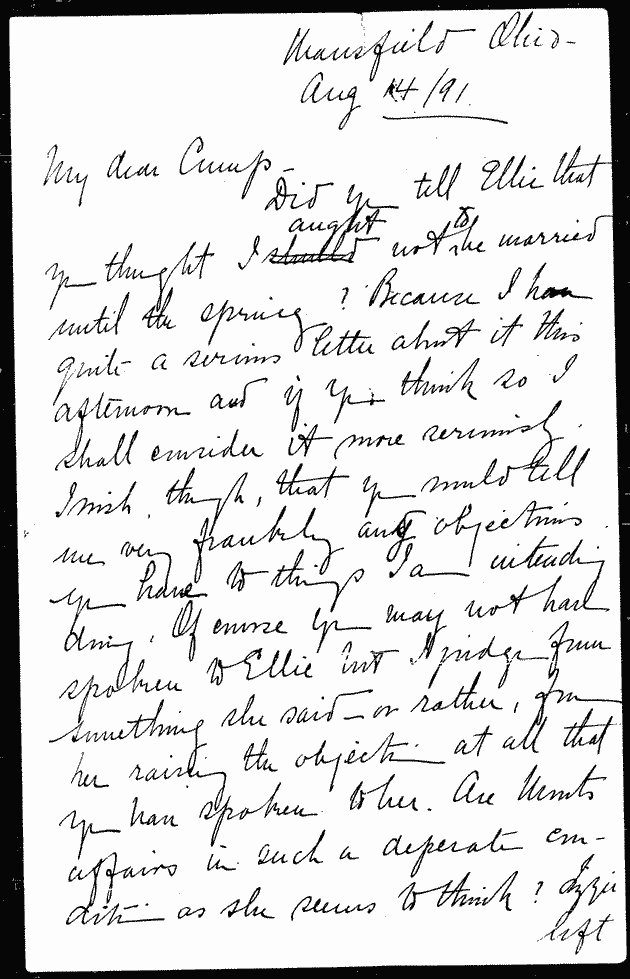 Mansfield Ohio -
Aug 14 /91.
My dear Cump -
Did you tell Ellie that
aught to
you thought I should not be married
until the spring? Because I have
quite a serious letter about it this
afternoon and if you think so I
shall consider it more seriously.
I wish, though, that you would tell
me very frankly any objections
you have to things I am intending
doing. Of course you may not have
spoken to Ellie but I judge from
something she said - or rather, from
her raising the objection at all that
you have spoken to her. Are
affairs in such a deperate con-
dition as she seems to think? Lizzie
left